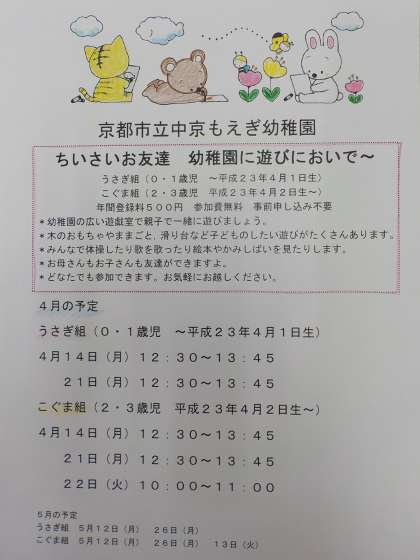 京都市立中京もえぎ幼稚園
ちいさいお友達　幼稚園に遊びにおいで～
うさぎ組（０・１歳児　～平成２３年４月１日生）
こぐま組（２・３歳児　平成２３年４月２日生～）
年間登録料５００円　参加費無料　事前申し込み不要
＊幼稚園の広い遊戯室で親子で一緒に遊びましょう。
＊木のおもちゃやままごと，滑り台など子どものしたい遊びがたくさんあります。
＊みんなで体操したり歌を歌ったり絵本やかみしばいを見たりします。
＊お母さんもお子さんも友達ができますよ。
＊どなたでも参加できます。お気軽にお越しください。
４月の予定
うさぎ組（０・１歳児　～平成２３年４月１日生）
４月１４日（月）１２：３０～１３：４５
２１日（月）１２：３０～１３：４５
こぐま組（２・３歳児　平成２３年４月２日生～）
４月１４日（月）１２：３０～１３：４５
２１日（月）１２：３０～１３：４５
２２日（火）１０：００～１１：００
５月の予定
うさぎ組　５月１２日（月）　２６日（月）
こぐま組　５月１２日（月）　２６日（月）　１３日（火）